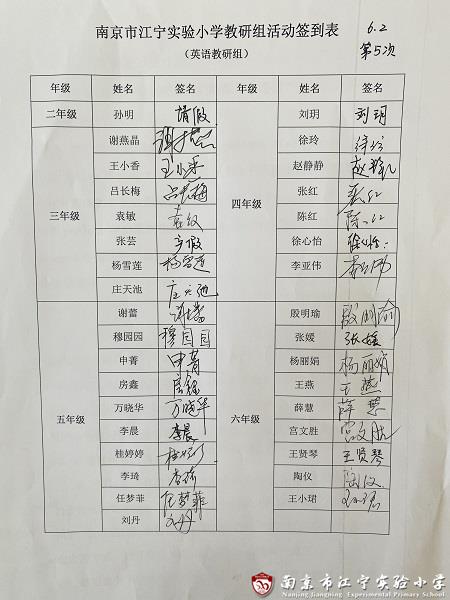 南京市江宁实验小学教研组活动签到表
6.2
(英语教研组)
第5次
年级 姓名 签名 年级 姓名 签名
二年级 孙明 请假 刘玥 刘玥
谢燕晶 徐玲
王小香 王小香 赵静静
吕长梅 吕长梅 四年级 张红 张红
三年级 袁敏 陈红 陈红
张芸 徐心怡 徐心怡
杨雪莲 杨雪莲 李亚伟
庄天池 庄天池
谢蕾 谢蕾 殷明瑜 殷明瑜
穆园园 穆园园 张嫒 张嫒
申菁 申菁 杨丽娟 杨丽娟
房鑫 房鑫 王燕 王燕
五年级 万晓华 万晓华 六年级 薛慧 薛慧
李晨 李晨 宫文胜 宫文胜
桂婷婷 王贤琴 王贤琴
李琦 李琦 陶仪 陶仪
任梦菲 任梦菲 王小珺
刘丹 刘丹
南京市江宁实验小学
Nanjing Jiangning Experimental Primary School